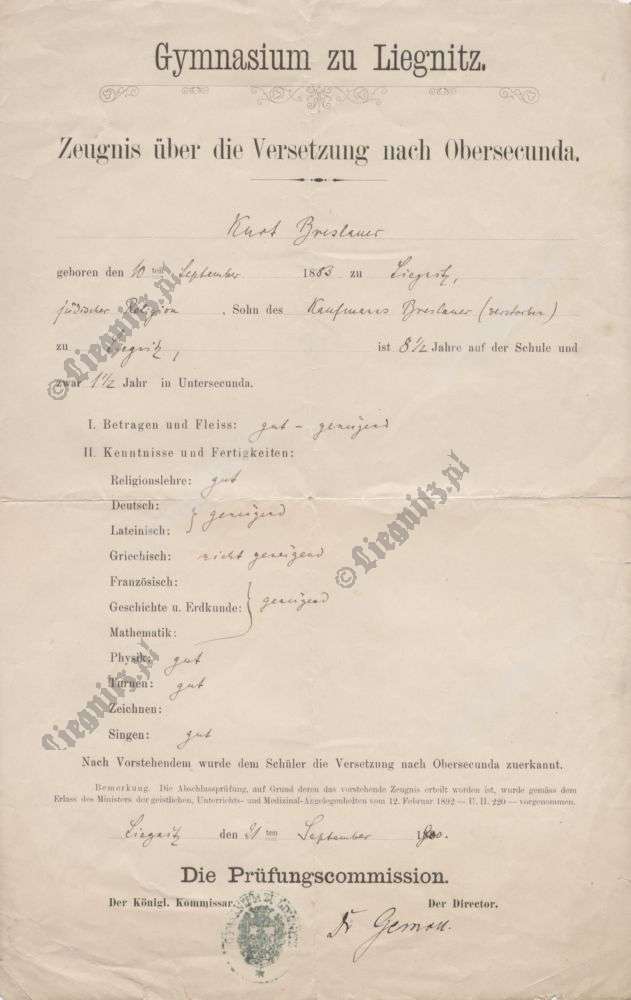 Gymnasium zu Liegnitz.
Zeugnis über die Versetzung nach Obersecunda.
Kurt Breslauer
geboren den 10 ten September 1883 zu Liegnitz,
jüdischer Religion, Sohn des Kaufmanns Breslauer (verstorben)
zu Liegnitz, ist 8 1/2 Jahre auf der Schule und
zwar 1 1/2 Jahr in Untersecunda.
I. Betragen und Fleiss: gut - genügend
II. Kenntnisse und Fertigkeiten:
Religionslehre: gut
Deutsch:
Lateinisch: } genügend
Griechisch: nicht genügend
Französisch:
Geschichte u. Erdkunde: } genügend
Mathematik:
Physik: gut
Turnen: gut
Zeichnen:
Singen: gut
Nach Vorstehendem wurde dem Schüler die Versetzung nach Obersecunda zuerkannt.
Bemerkung. Die Abschlussprüfung, auf Grund deren das vorstehende Zeugnis erteilt worden ist, wurde gemäss dem
Erlass des Ministers der geistlichen, Unterrichts- und Medizinal-Angelegenheiten vom 12. Februar 1892 — U. II. 220 — vorgenommen.
Liegnitz den 21 ten September 1900.
Die Prüfungscommission.
Der Königl. Kommissar. Der Director.
Dr Gemoll.
© Liegnitz.pl
© Liegnitz.pl
Liegnitz.pl